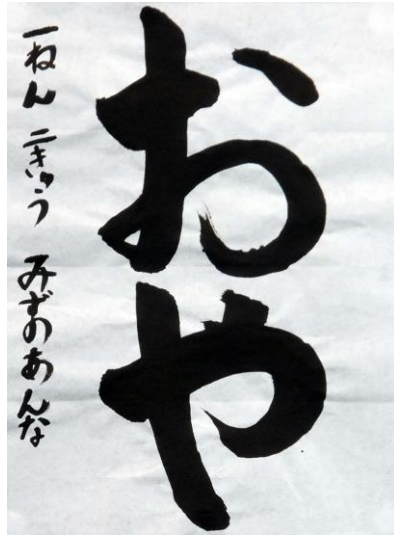 おや
一ねん 二きゅう みずのあんな